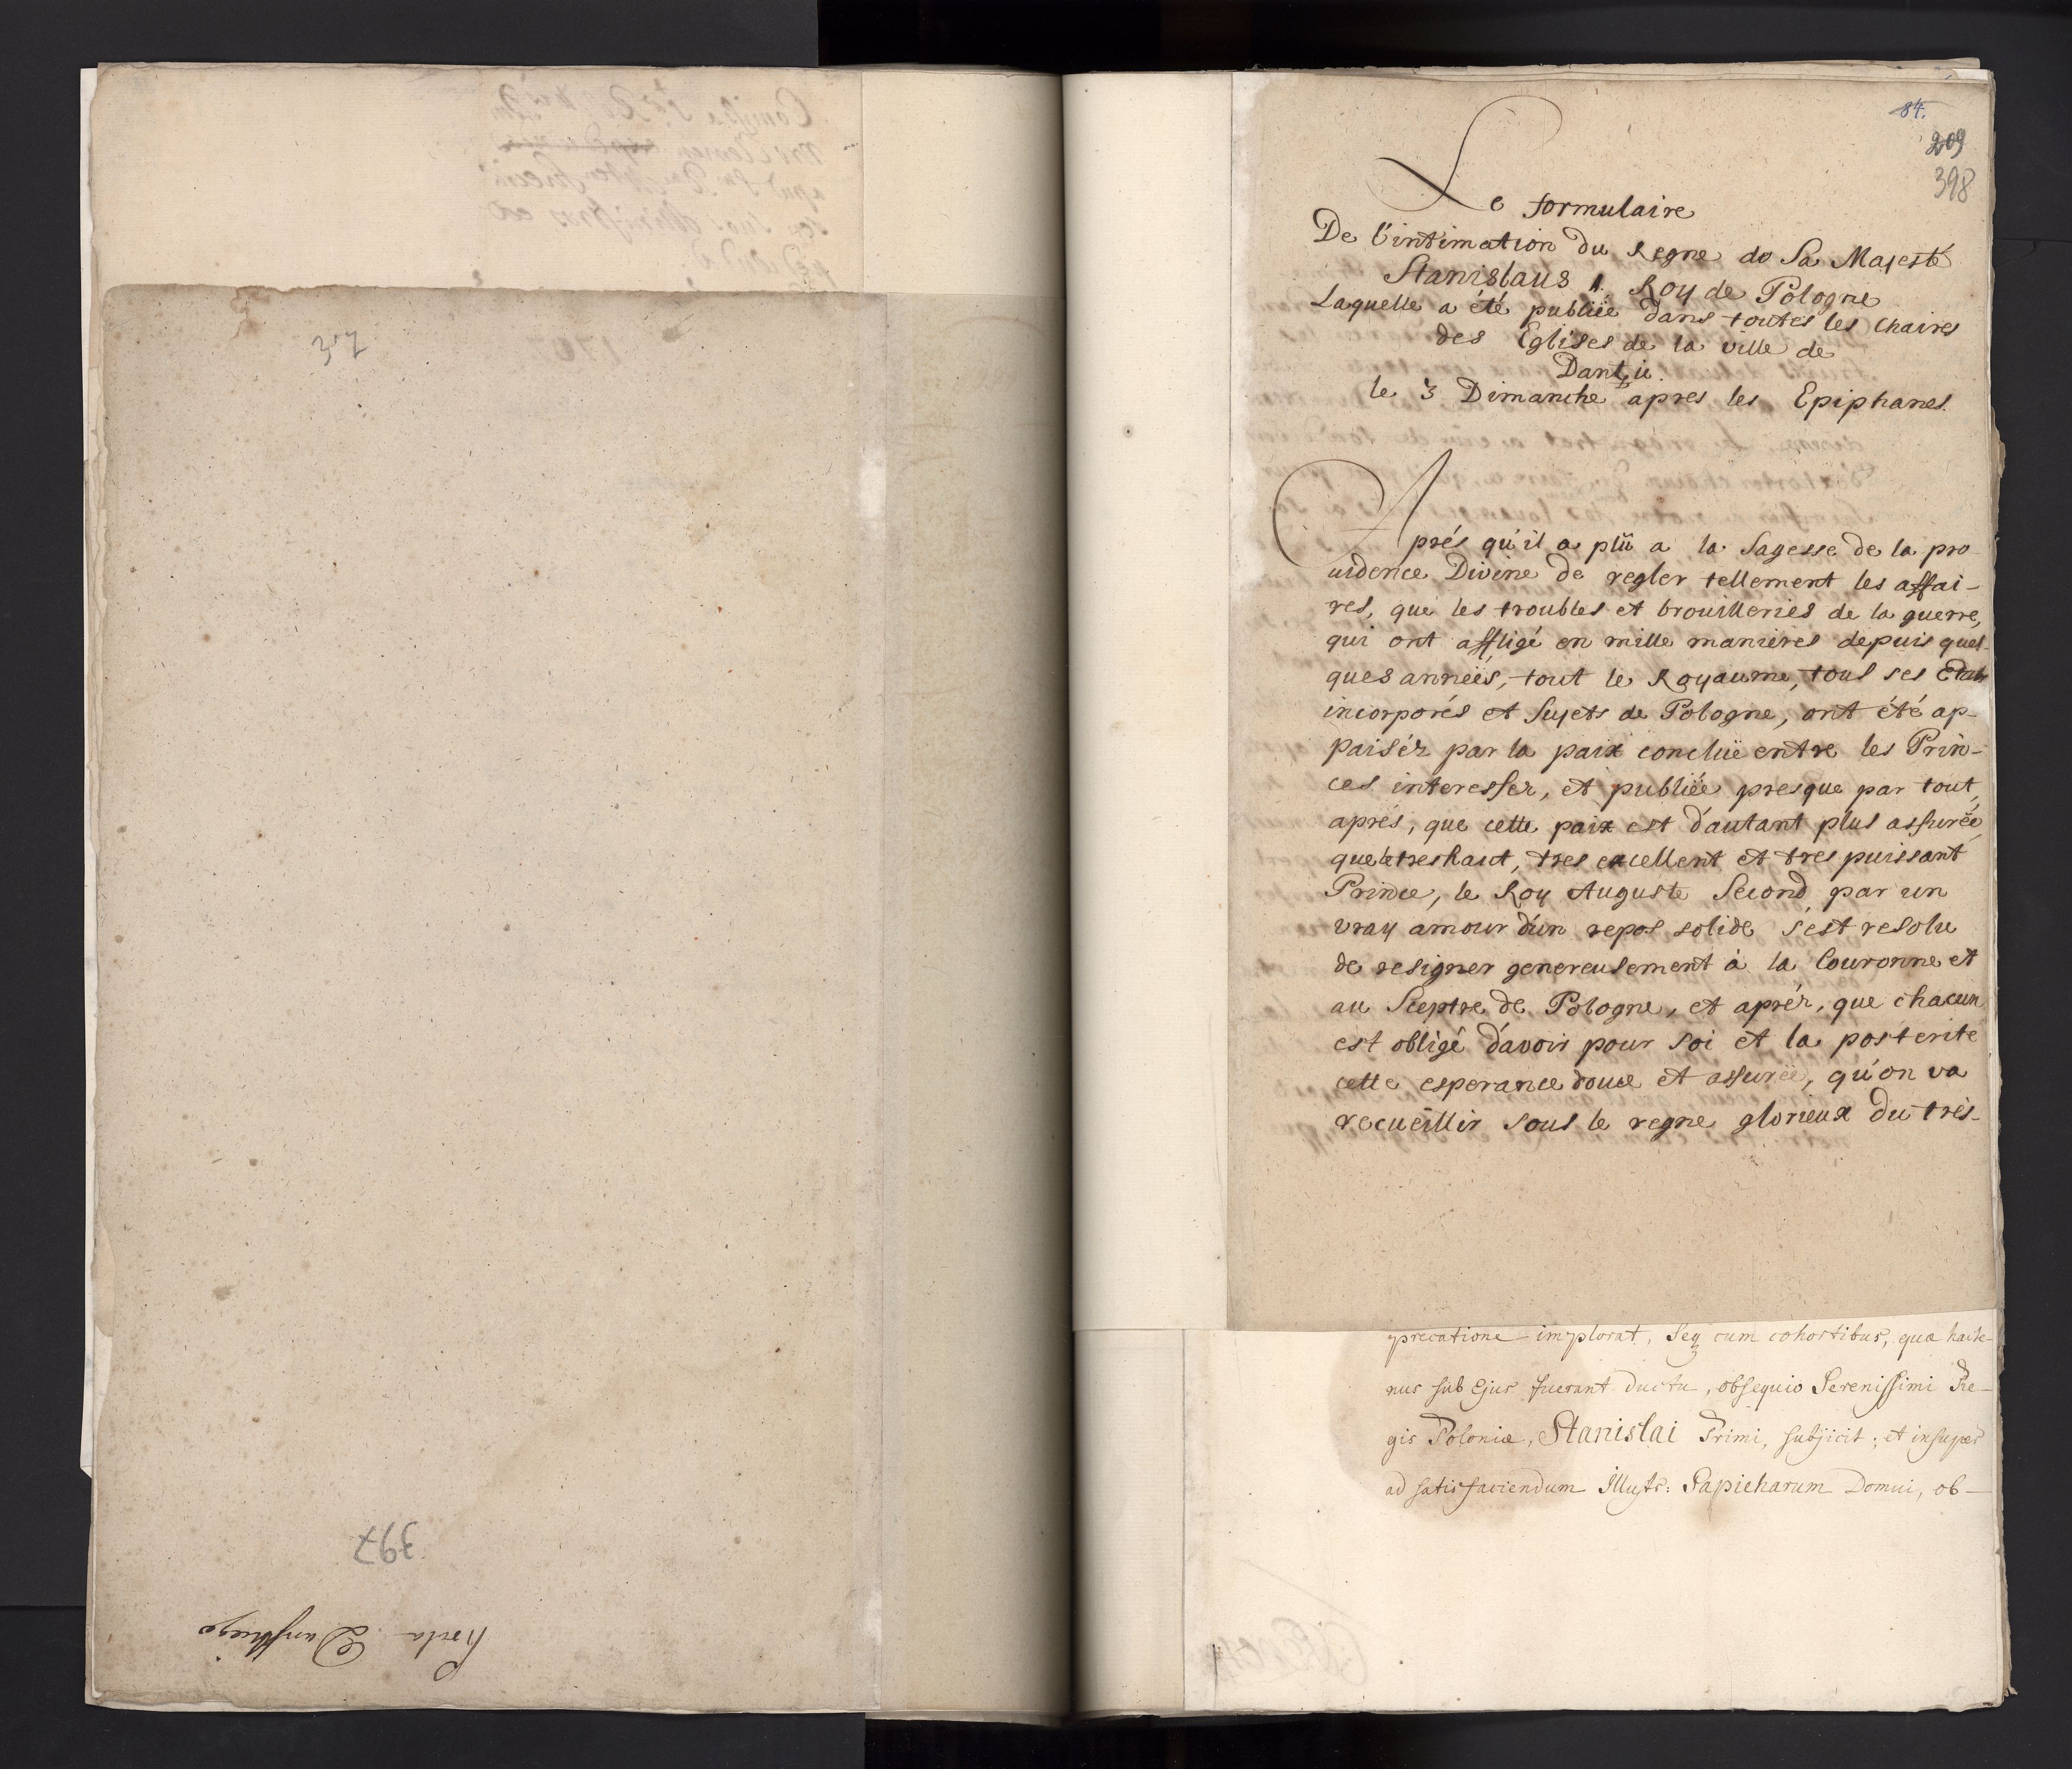 397
84.
209
398
Le formulaire
De l'intimation du Regne de Sa Majesté
Stanislaus 1. Roy de Pologne
Laquelle a été publiée dans toutes les Chaires
des Eglises de la ville de
Dantzic.
le 3 Dimanche apres les Epiphanes.
Aprés qu'il a plû a la Sagesse de la pro
uidence Divine de regler tellement les affai-
res, que les troubles et brouilleries de la guerre,
qui ont affligé en mille manieres depuis quel-
ques anneés, tout le Royaume, tous ses Etats
incorporés et Sujets de Pologne, ont été ap-
paiséz par la paix concluë entre les Prin-
ces interessez, et publiée presque par tout,
aprés, que cette paix est d'autant plus assurée,
que le tres haut, tres excellent et tres puissant
Prince, le Roy Auguste Second par un
vray amour d'un repos solide s'est resolu
de resigner genereusement à la Couronne et
au Sceptre de Pologne, et apréz, que chacun
est obligé d'avoir pour soi et la posterite
cette esperance douce et assureé, qu'on va
recueillir sous le regne glorieux du trés-
precatione implorat, Seq cum cohortibus, quæ hacte-
nus sub Ejus fuerant ductu, obsequio Serenissimi Re-
gis Poloniæ, Stanislai Primi, subjicit; et insuper
ad satisfaciendum Illustr: Sapieharum Domui, ob-